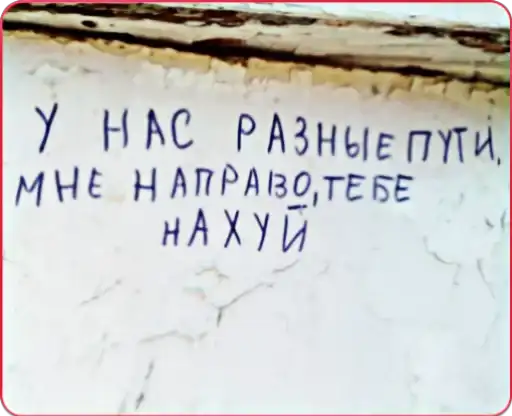 У НАС РАЗНЫЕ ПУТИ,
МНЕ НАПРАВО, ТЕБЕ
НАХУЙ